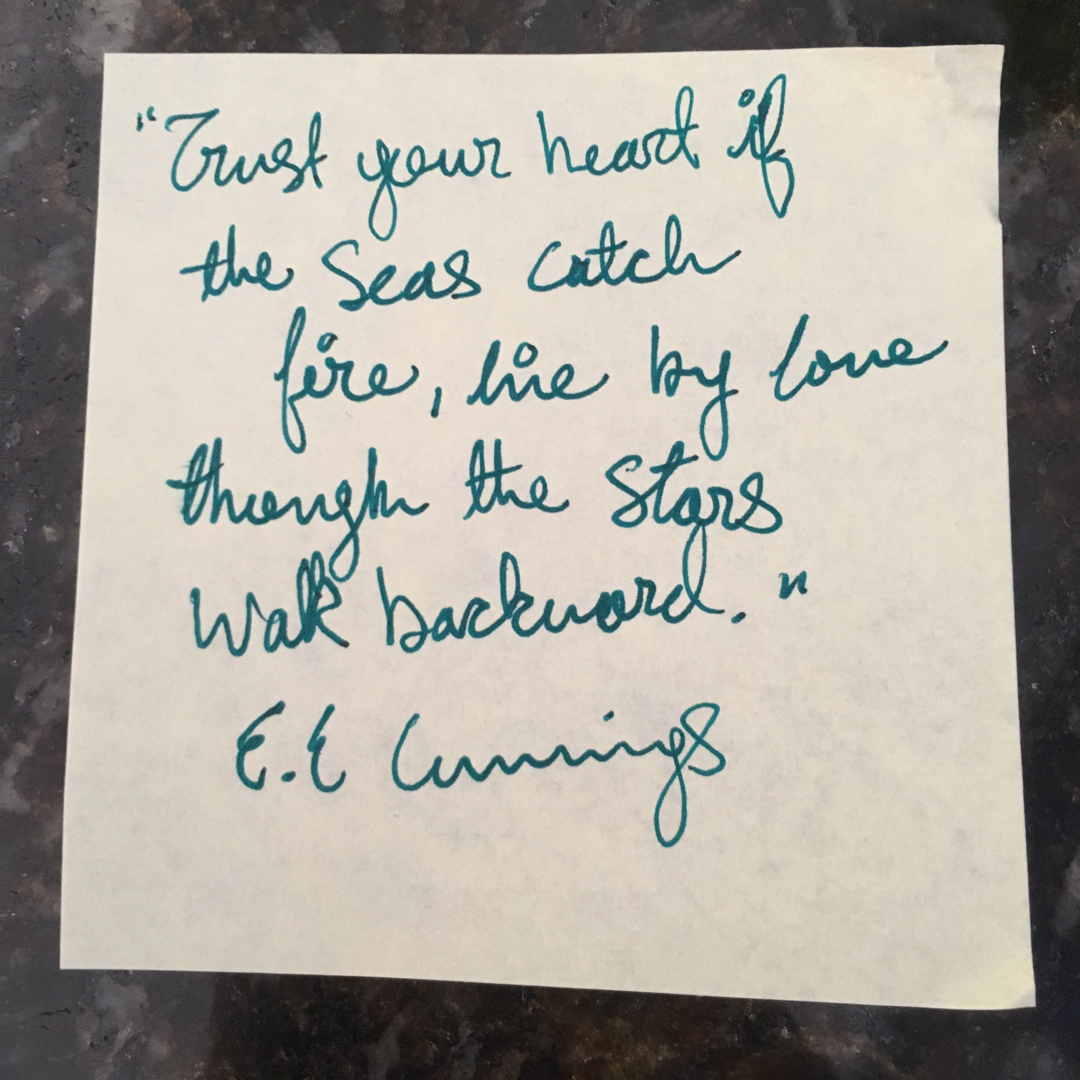 "Trust your heart if
the Seas catch
fire, live by love
though the Stars
Walk backward."
E.E Cummings